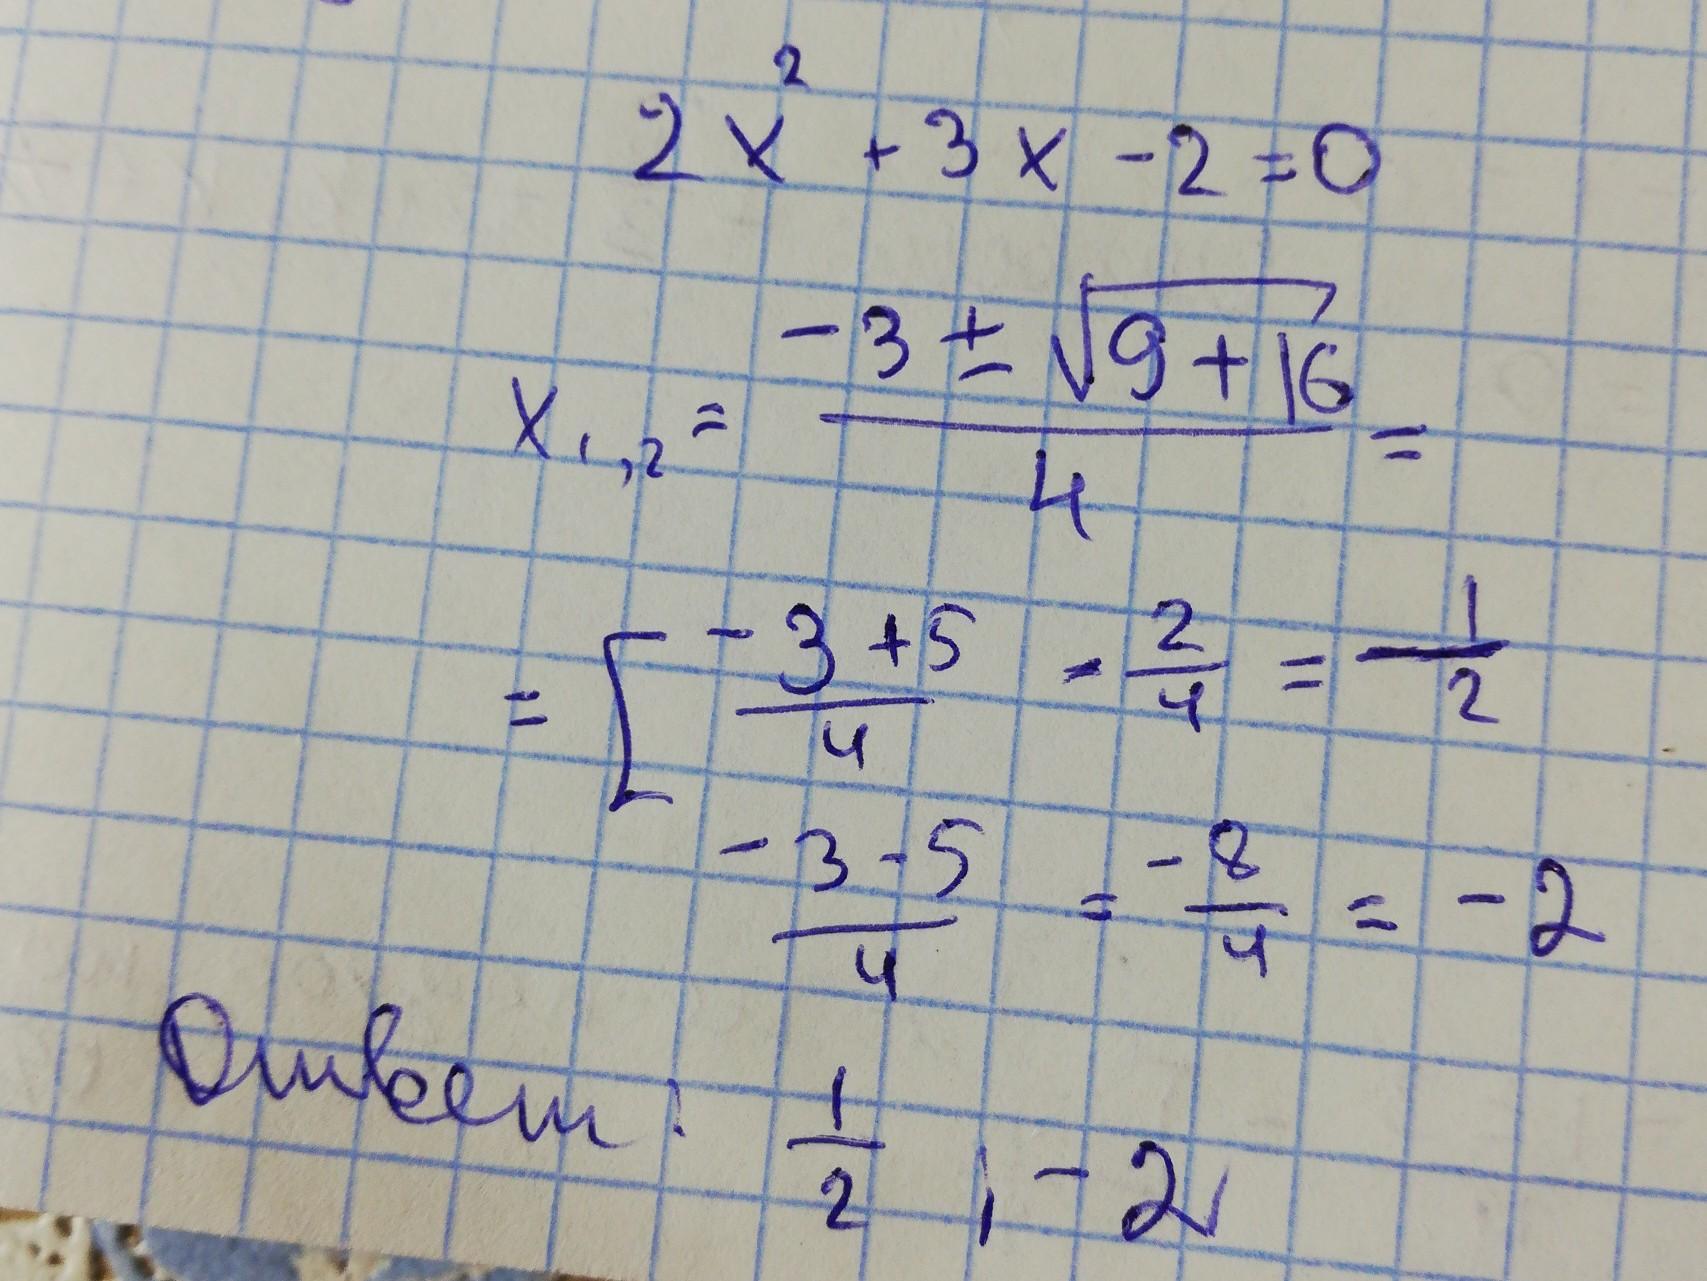 2x² + 3x - 2 = 0
x₁,₂ = (-3 ± √(9 + 16))/4 =
= [ (-3 + 5)/4 = 2/4 = 1/2
(-3 - 5)/4 = -8/4 = -2
Ответ: 1/2 ; -2